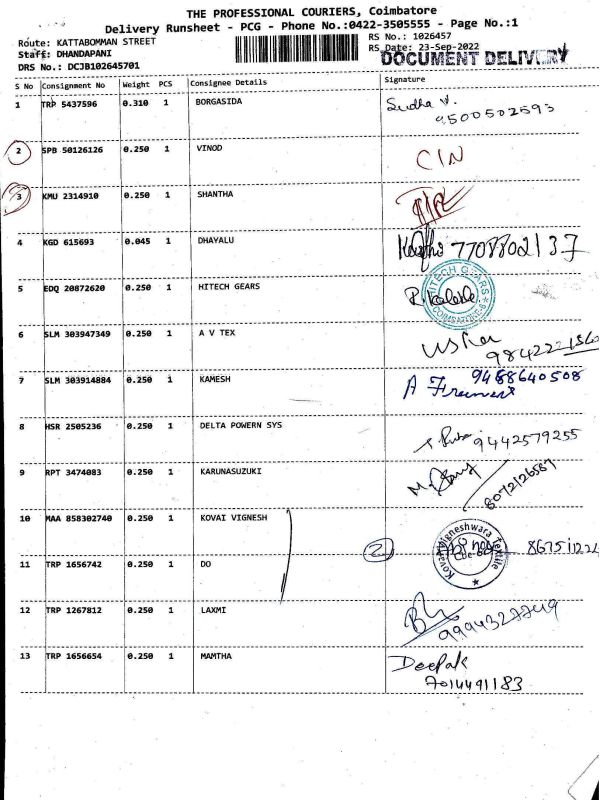 THE PROFESSIONAL COURIERS, Coimbatore
Delivery Runsheet - PCG - Phone No.:0422-3505555 - Page No.:1
Route: KATTABOMMAN STREET
RS No.: 1026457
Staff: DHANDAPANI
RS Date: 23-Sep-2022
DRS No.: DCJB102645701
DOCUMENT DELIVERY
S No Consignment No Weight PCS Consignee Details Signature
1 TRP 5437596 0.310 1 BORGASIDA Sudha V.
9500502593
2 SPB 50126126 0.250 1 VINOD CIN
3 KMU 2314910 0.250 1 SHANTHA
4 KGD 615693 0.045 1 DHAYALU 7708802137
5 EDQ 20872620 0.250 1 HITECH GEARS
HITECH GEARS
6 SLM 303947349 0.250 1 A V TEX
7 SLM 303914884 0.250 1 KAMESH 9488640508
A
8 HSR 2505236 0.250 1 DELTA POWERN SYS 9442579255
9 RPT 3474083 0.250 1 KARUNASUZUKI
8072126587
10 MAA 858302740 0.250 1 KOVAI VIGNESH
2
Kovai Vigneshwara Textile
11 TRP 1656742 0.250 1 DO
12 TRP 1267812 0.250 1 LAXMI
13 TRP 1656654 0.250 1 MAMTHA Deepak
7014491183